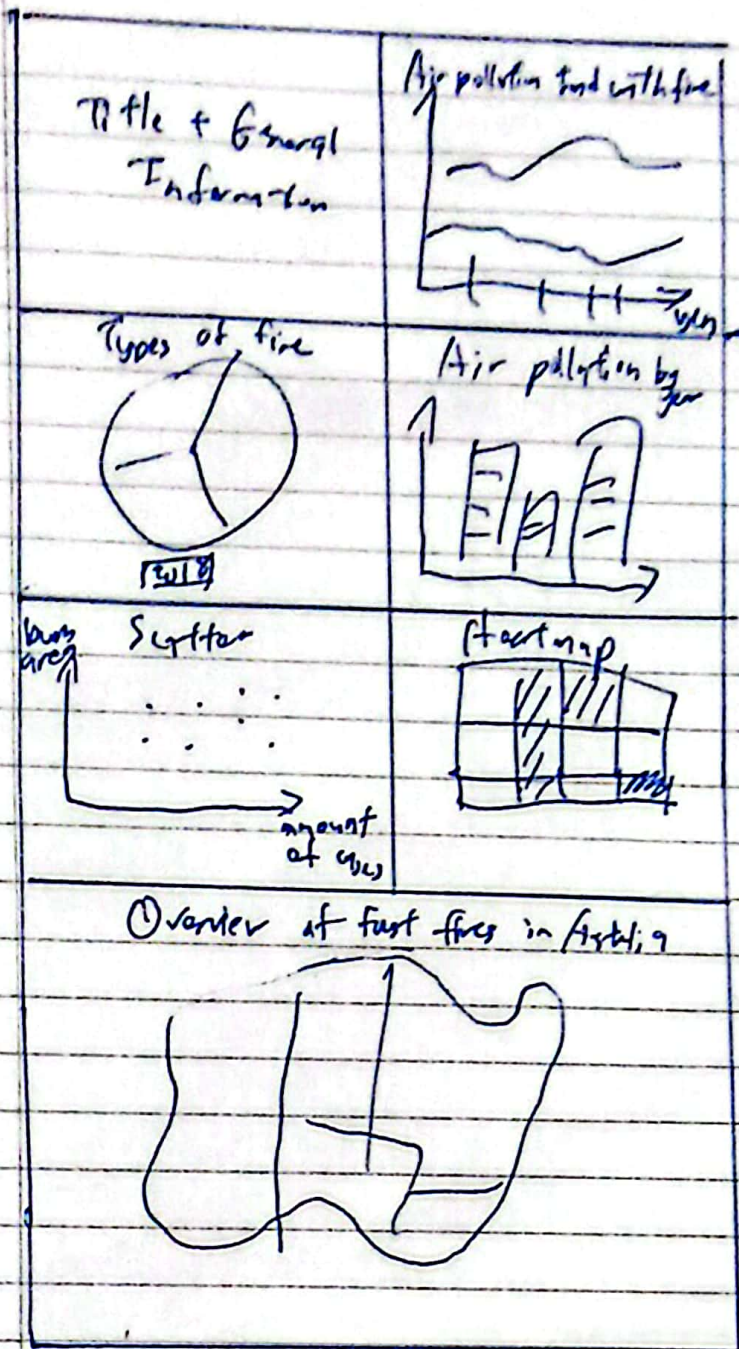 Title + General
Information
Air pollution trend with fire
Types of fire
Air pollution by
year
2018
burn
area
Scatter
amount
of
Heatmap
Overview of fires in Australia